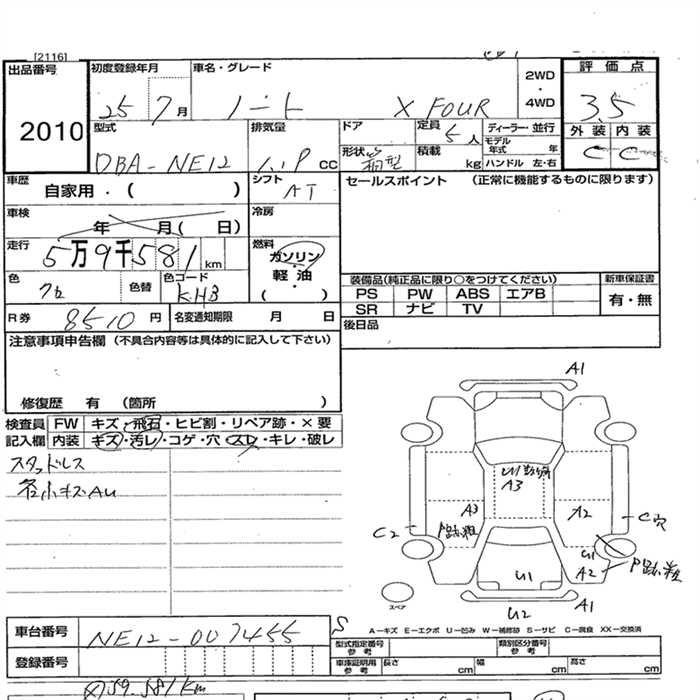 [2116]
出品番号
2010
初度登録年月
25 7月
車名・グレード
ノート X FOUR
2WD
・
4WD
評価点
3.5
外装 内装
C C
型式
DBA-NE12
排気量
1.2P CC
ドア
定員
5人
ディーラー・並行
モデル年式 年
形状 箱型
積載 kg
ハンドル 左・右
車歴
自家用・( )
シフト
AT
セールスポイント (正常に機能するものに限ります)
車検
年 月( 日)
冷房
走行
5万9千581km
燃料
ガソリン
・
軽油
・
( )
色
色替
色コード
KH3
装備品(純正品に限り○をつけてください)
新車保証書
PS PW ABS エアB
SR ナビ TV
有・無
R券 8510円
名変通知期限 月 日
後日品
注意事項申告欄 (不具合内容等は具体的に記入して下さい)
修復歴 有 (箇所 )
検査員記入欄
FW キズ・飛石・ヒビ割・リペア跡・×要
内装 キズ・汚レ・コゲ・穴・スレ・キレ・破レ
スタッドレス
各小キズAU
A1
U1
A3
A3
P跡、粗
A2
C2
C穴
U1
A2
P跡、粗
U1
A1
U2
スペア
S
A－キズ E－エクボ U－凹み W－補修跡 S－サビ C－腐食 XX－交換済
車台番号
NE12-007455
登録番号
型式指定番号参考
類別区分番号参考
車庫証明用参考 長さ cm 幅 cm 高さ cm
59.581km